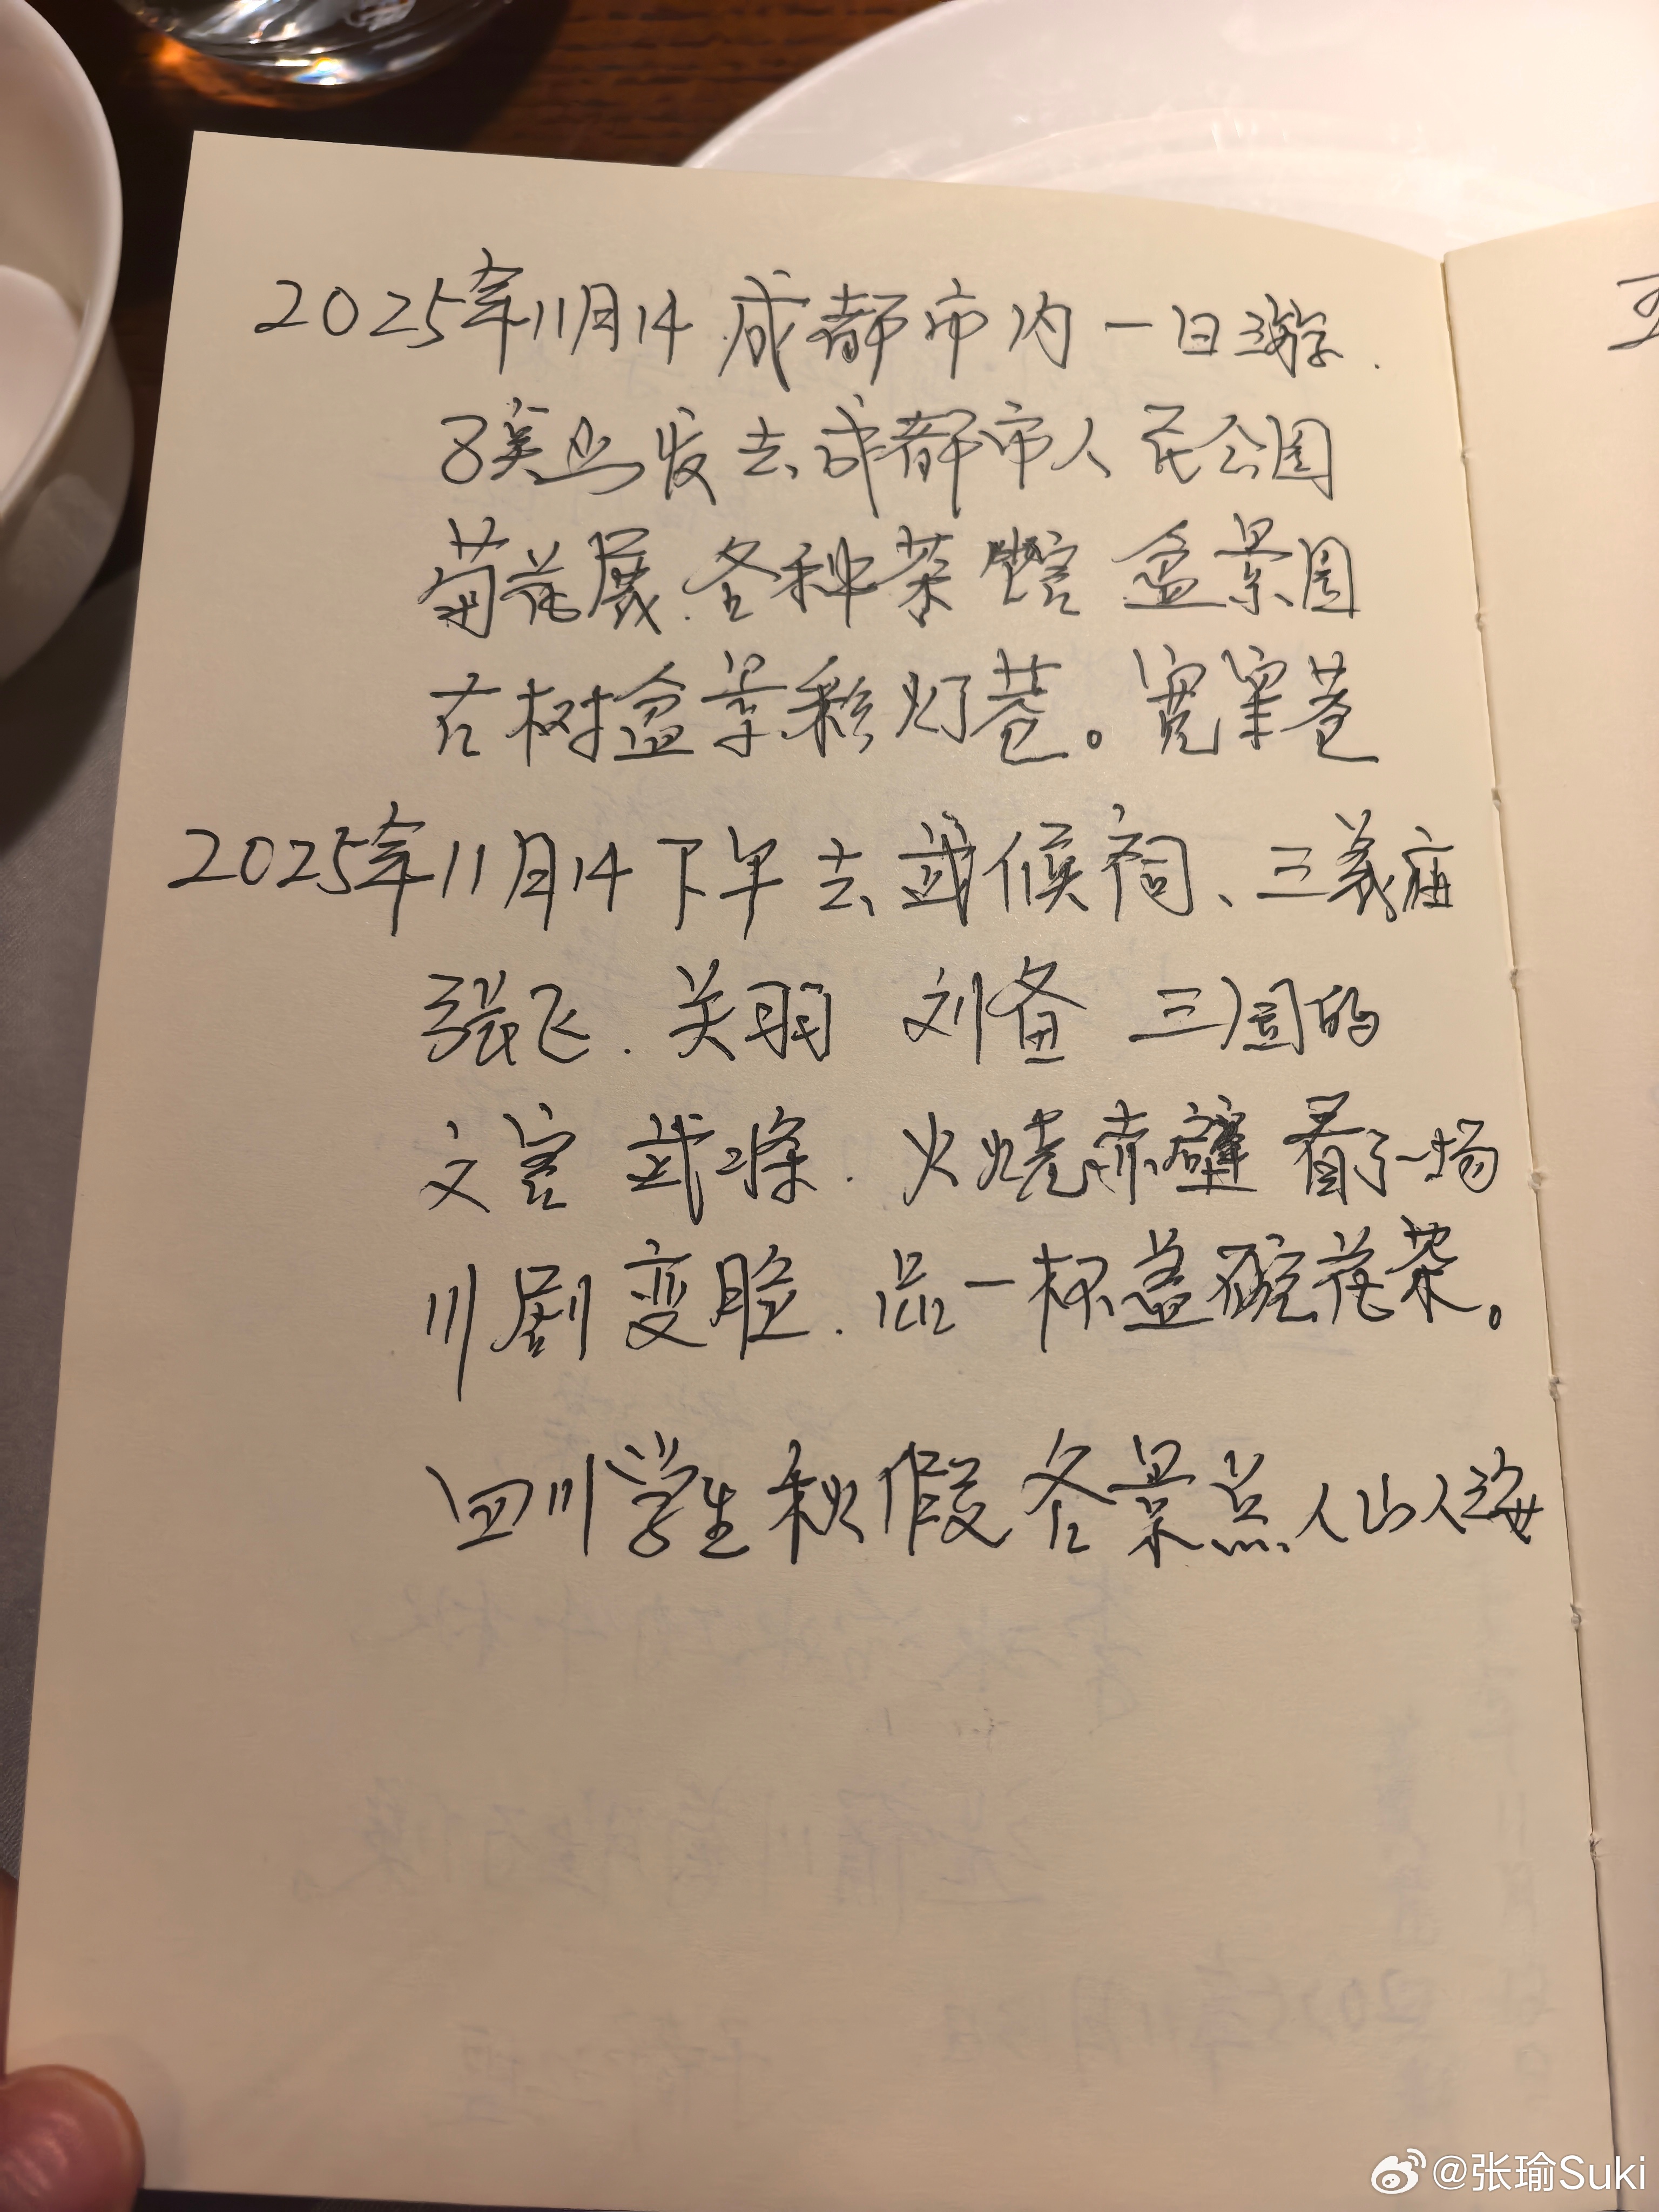 2025年11月14 成都市内一日游.
8点出发去成都市人民公园
菊花展.各种茶馆 盆景园
古树盆景彩灯巷。宽窄巷
2025年11月14下午去武候祠、三义庙
張飞.关羽 刘备 三国的
文官 武将.火烧赤壁 看了一场
川剧变脸.品一杯盖碗花茶。
四川学生秋假各景点人山人海
@张瑜Suki